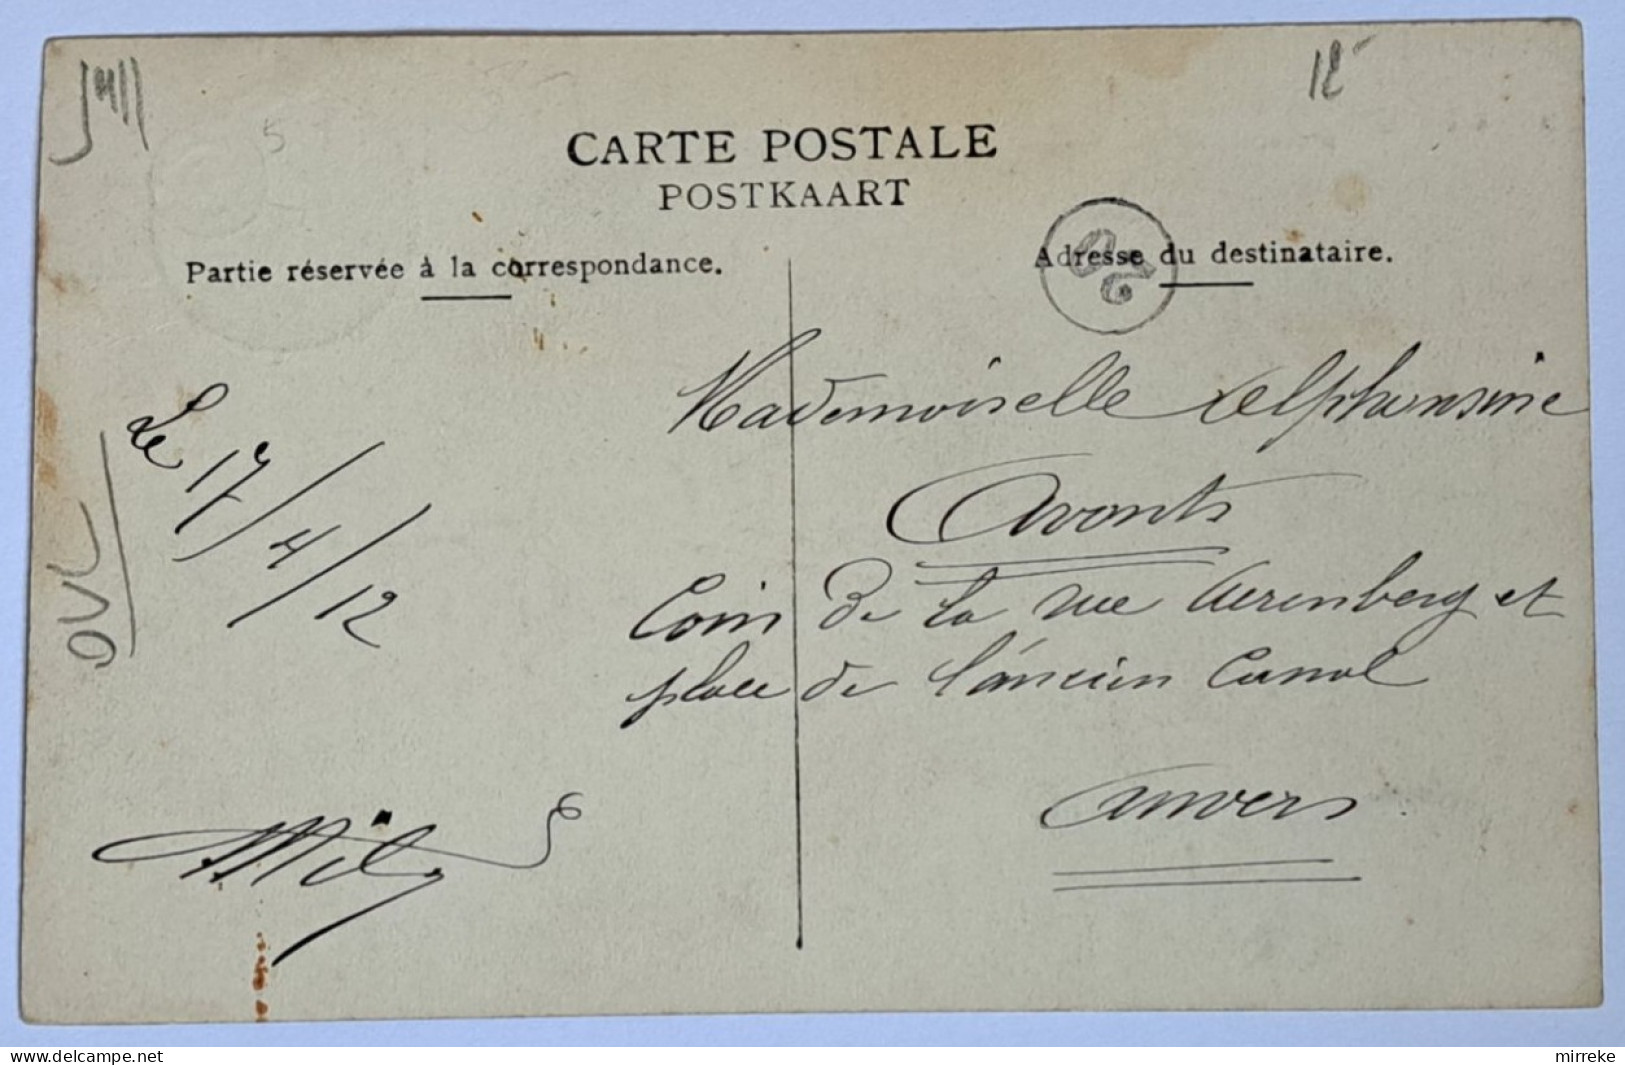 12
5
CARTE POSTALE
POSTKAART
Partie réservée à la correspondance.
Adresse du destinataire.
Le 17/4/12
OVL
Mily
Mademoiselle Alphonsine
Avonts
Coin de la rue Aerenberg et
place de l'ancien Canal
Anvers
delcampe.net
mirreke